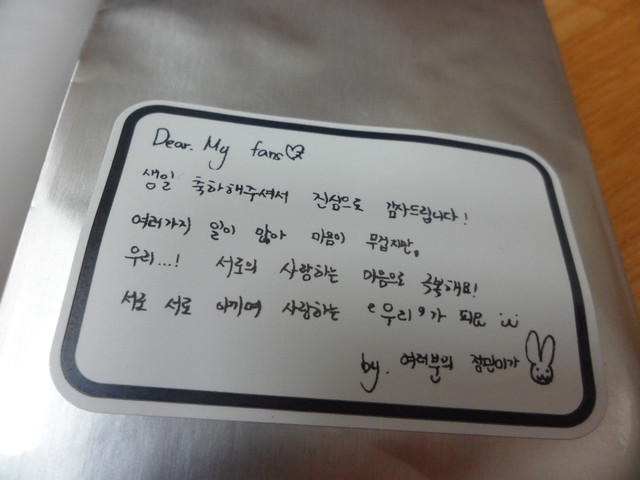 Dear. My fans♡
생일 축하해주셔서 진심으로 감사드립니다!
여러가지 일이 많아 마음이 무겁지만,
우리...! 서로의 사랑하는 마음으로 극복해요!
서로 서로 아끼며 사랑하는 '우리'가 되요
by. 여러분의 정민이가